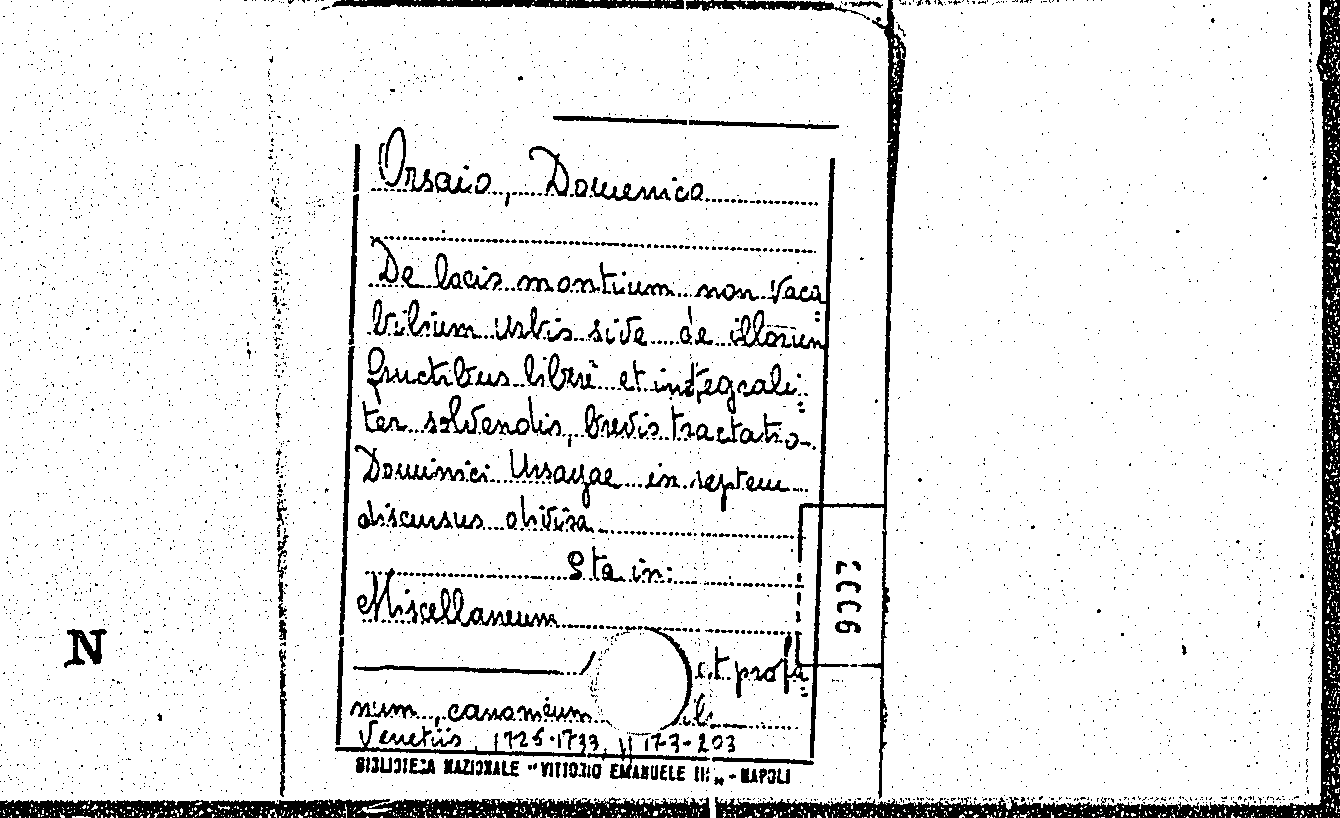 Orsaio, Domenico
De locis montium non vaca=
bilium Urbis sive de illorum
fructibus liberè et integrali=
ter solvendis, brevis tractatio
Dominici Ursayae in septem
discursus divisa
Sta in:
Miscellaneum
et profa=
num, canonicum
Venetiis, 1726-1733, II 177-203
BIBLIOTECA NAZIONALE "VITTORIO EMANUELE III" - NAPOLI
N